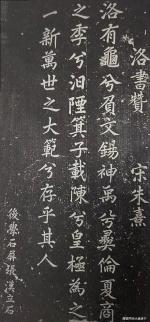 洛書贊　宋朱熹
洛有龜兮負文錫神禹兮彝倫夏商
之季兮汩陻箕子載陳兮皇極為之
一新萬世之大範兮存乎其人
後學石屏張漢立石